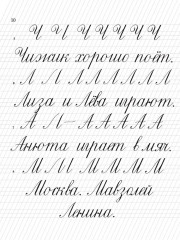 30
Ч Ч Ч Ч Ч Ч Ч
Чижик хорошо поёт.
Л Л Л Л Л Л Л Л
Лиза и Лёва играют.
А Л А А А А А
Анюта играет в мяч.
М М М М М М
Москва. Мавзолей
Ленина.